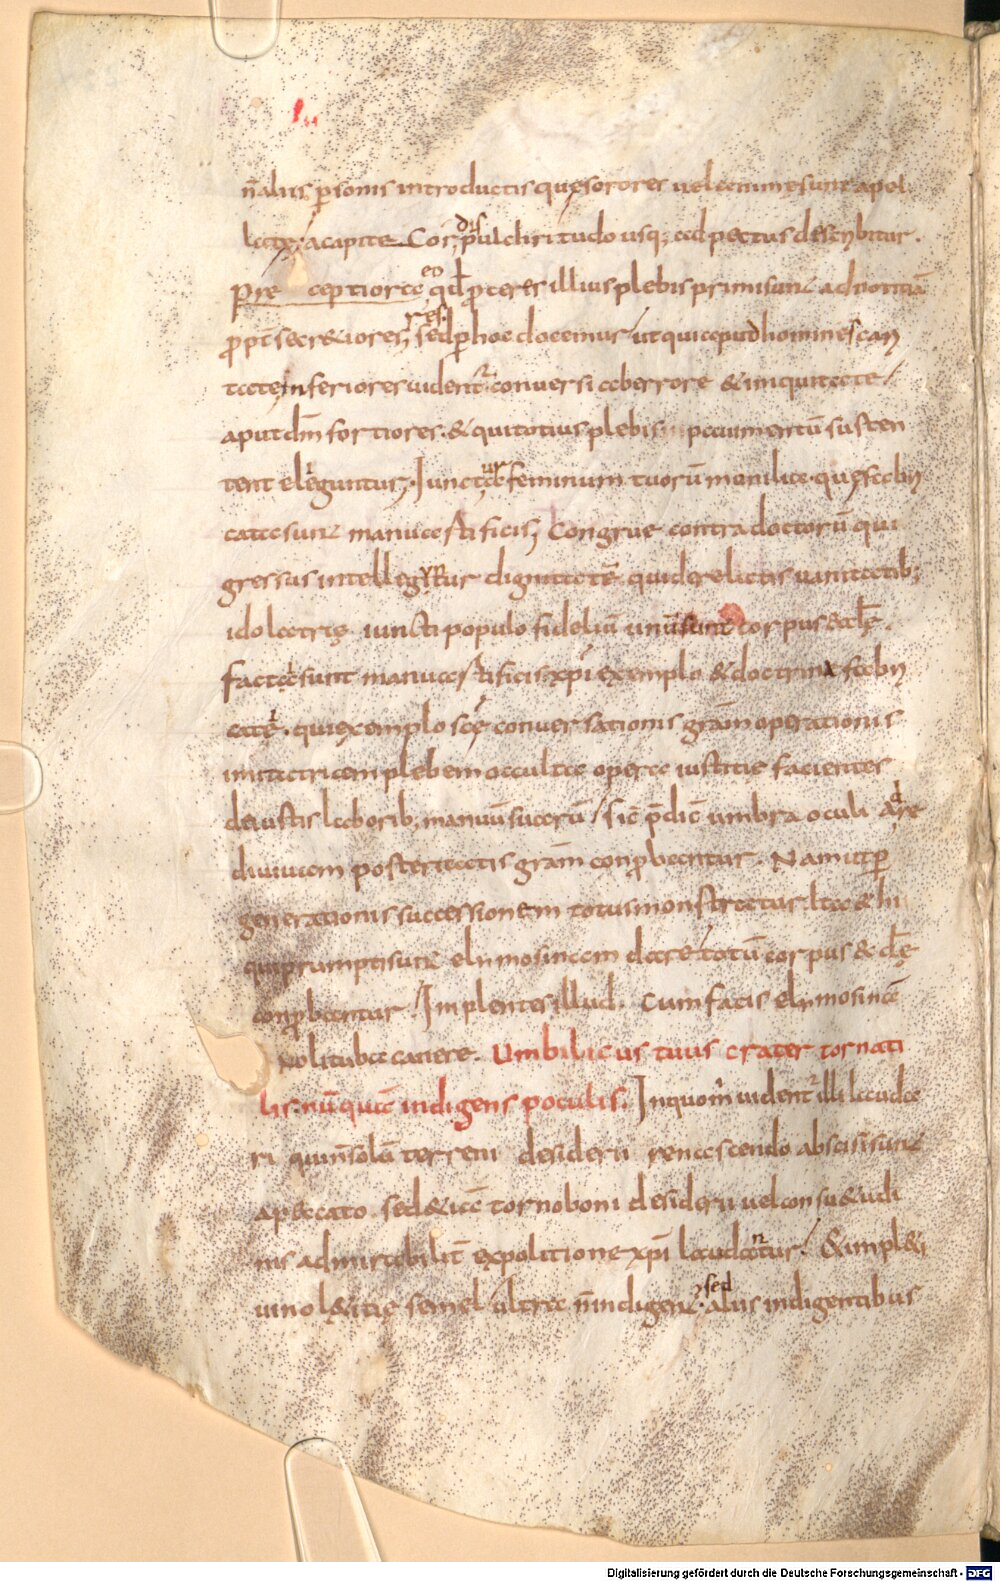 n̄ aliis p̱sonis introductis quę sorores uel comitę sunt a pol
lata / a capite. Corporis pulchritudo usq; ad pectus describitur.
Pręceptiores eo qd̄ p̱ceteris illius plebis primi sunt ad notitiā
ꝓpt̄ secretiores, sed p̱ hoc docemur / ut qui apud homines can
tate inferiores uident̄ conuersi ab errore & iniquitate /
aput dm̄ fortiores. & qui totius plebis pauimentū susten
tent eleguntur. Iunctura feminum tuorū monilia. quę fabri
cata sunt manu artificis. Congrue contra doctorū qui
gressus intellegitur dignitatē. qui derelictis uanitatib;
idolatrię. iuncti populo fideliū unū sunt corpus ęcclę.
facta sunt manu artificis xp̄i exemplo & doctrina fabri
cate. qui exemplo scę conuersationis gr̄am operationis
imitatricem plebem occulta opera iustitie facientes
de iustis laborib; manuū suarū / sic p̄dic̄ umbra oculi
diuitem posteritatis gr̄am conp̱beatur. Nam ut p̱
generationis successionem totus monstratur. Ita & hi
qui prumpti sunt elymosinam dare / totū corpus & clę
conp̱beantur. Implentes illud. Cum facis elymosinā
noli tuba canere. Umbilicus tuus crater tornati
lis. nūquā indigens poculis. In quo m̄ uident̄ illi lauda
ri qui n̄ solū terreni desiderii renascendo abscisi sunt
a peccato. sed & ita torno boni desiderii uel consuetudi
nis admirabilit̄ expolitione xp̄i laudantur. & impleti
uino lętitie semel ultra n̄ indigent. sed aliis indigentibus
Digitalisierung gefördert durch die Deutsche Forschungsgemeinschaft - DFG